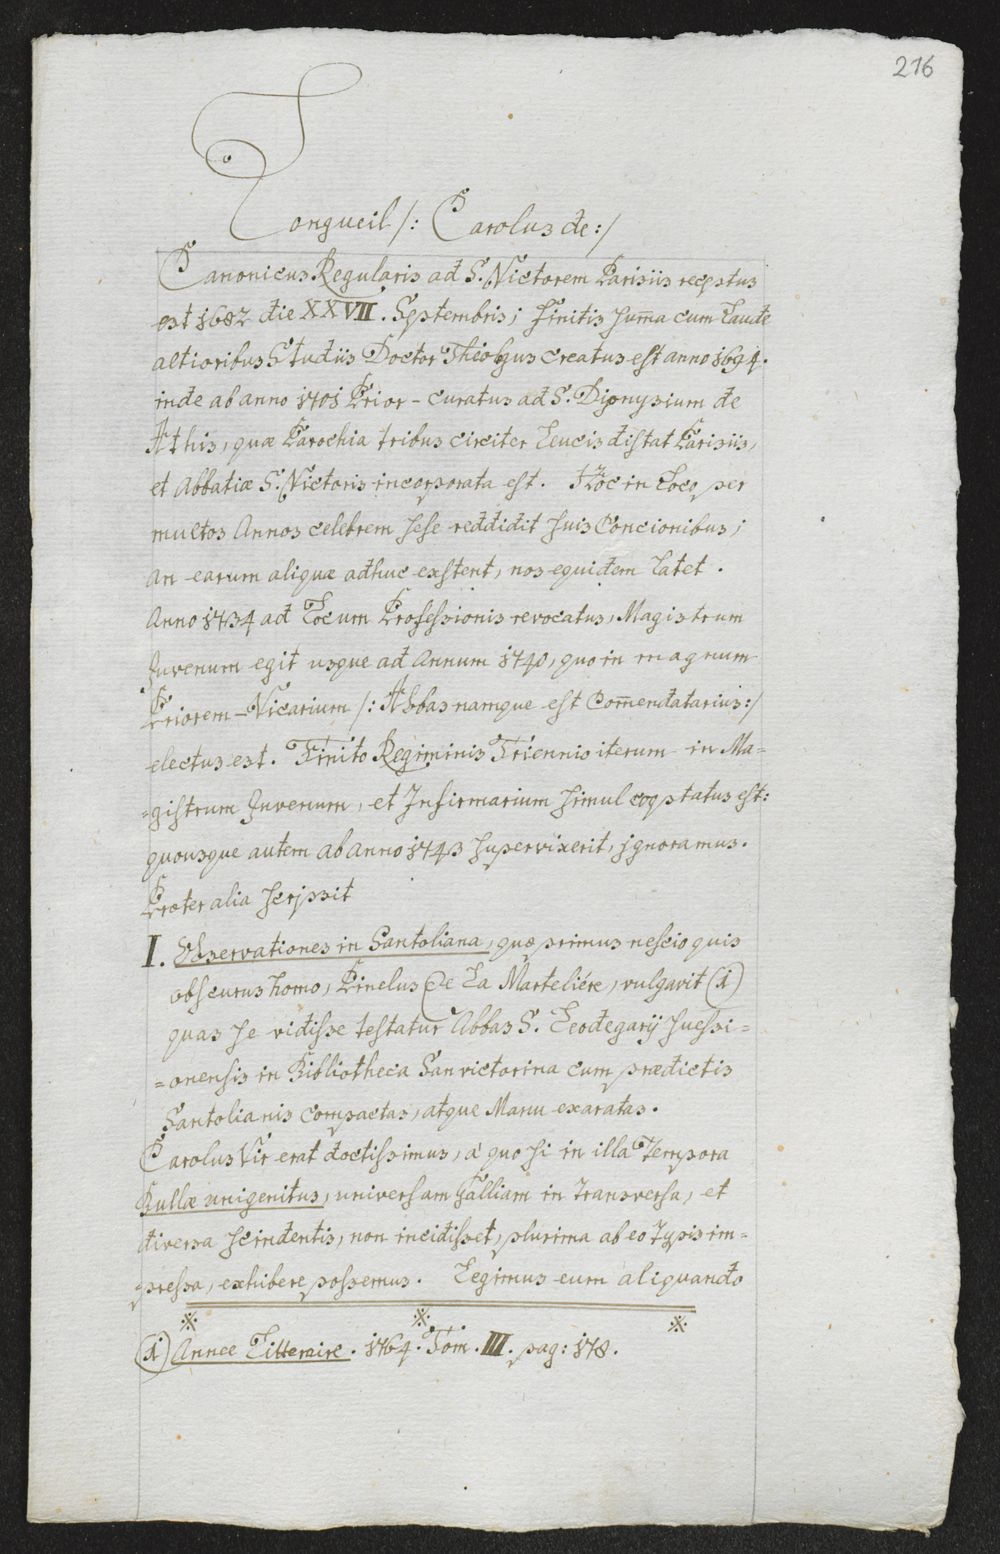 216
Longueil /: Carolus de :/
Canonicus Regularis ad S. Victorem Parisiis receptus
est 1682 die XXVII. Septembris; finitis summa cum Laude
altioribus Studiis Doctor Theologus creatus est anno 1694.
inde ab anno 1701 Prior - curatus ad S. Dionysium de
Athis, quæ Parochia tribus circiter Leucis distat Parisiis,
et Abbatiæ S. Victoris incorporata est. Hoc in Loco per
multos Annos celebrem sese reddidit suis Concionibus;
an earum aliquæ adhuc exstent, nos equidem latet.
Anno 1734 ad Locum Professionis revocatus, Magistrum
Juvenum egit usque ad Annum 1740, quo in magnum
Priorem - Vicarium /: Abbas namque est Com̄endatarius :/
electus est. Finito Regiminis Triennio iterum in Ma=
=gistrum Juvenum, et Infirmarium simul cooptatus est:
quousque autem ab anno 1743 supervixerit, ignoramus.
Præter alia scripsit
I. Observationes in Santoliana, quæ primus nescio quis
obscurus homo, Pinelus de La Marteliére, vulgavit (1)
quas se vidisse testatur Abbas S. Leodegarij Suessi=
=onensis in Bibliotheca Sanvictorina cum prædictis
Santolianis compactas, atque Manu exaratas.
Carolus Vir erat doctissimus, à quo si in illa Tempora
Bullæ unigenitus, universam Galliam in transversa, et
diversa scindentis, non incidisset, plurima ab eo Typis im=
pressa, exhibere possemus. Legimus eum aliquando
※ ※ ※
(1) Annee Litteraire. 1764. Tom. III. pag: 178.